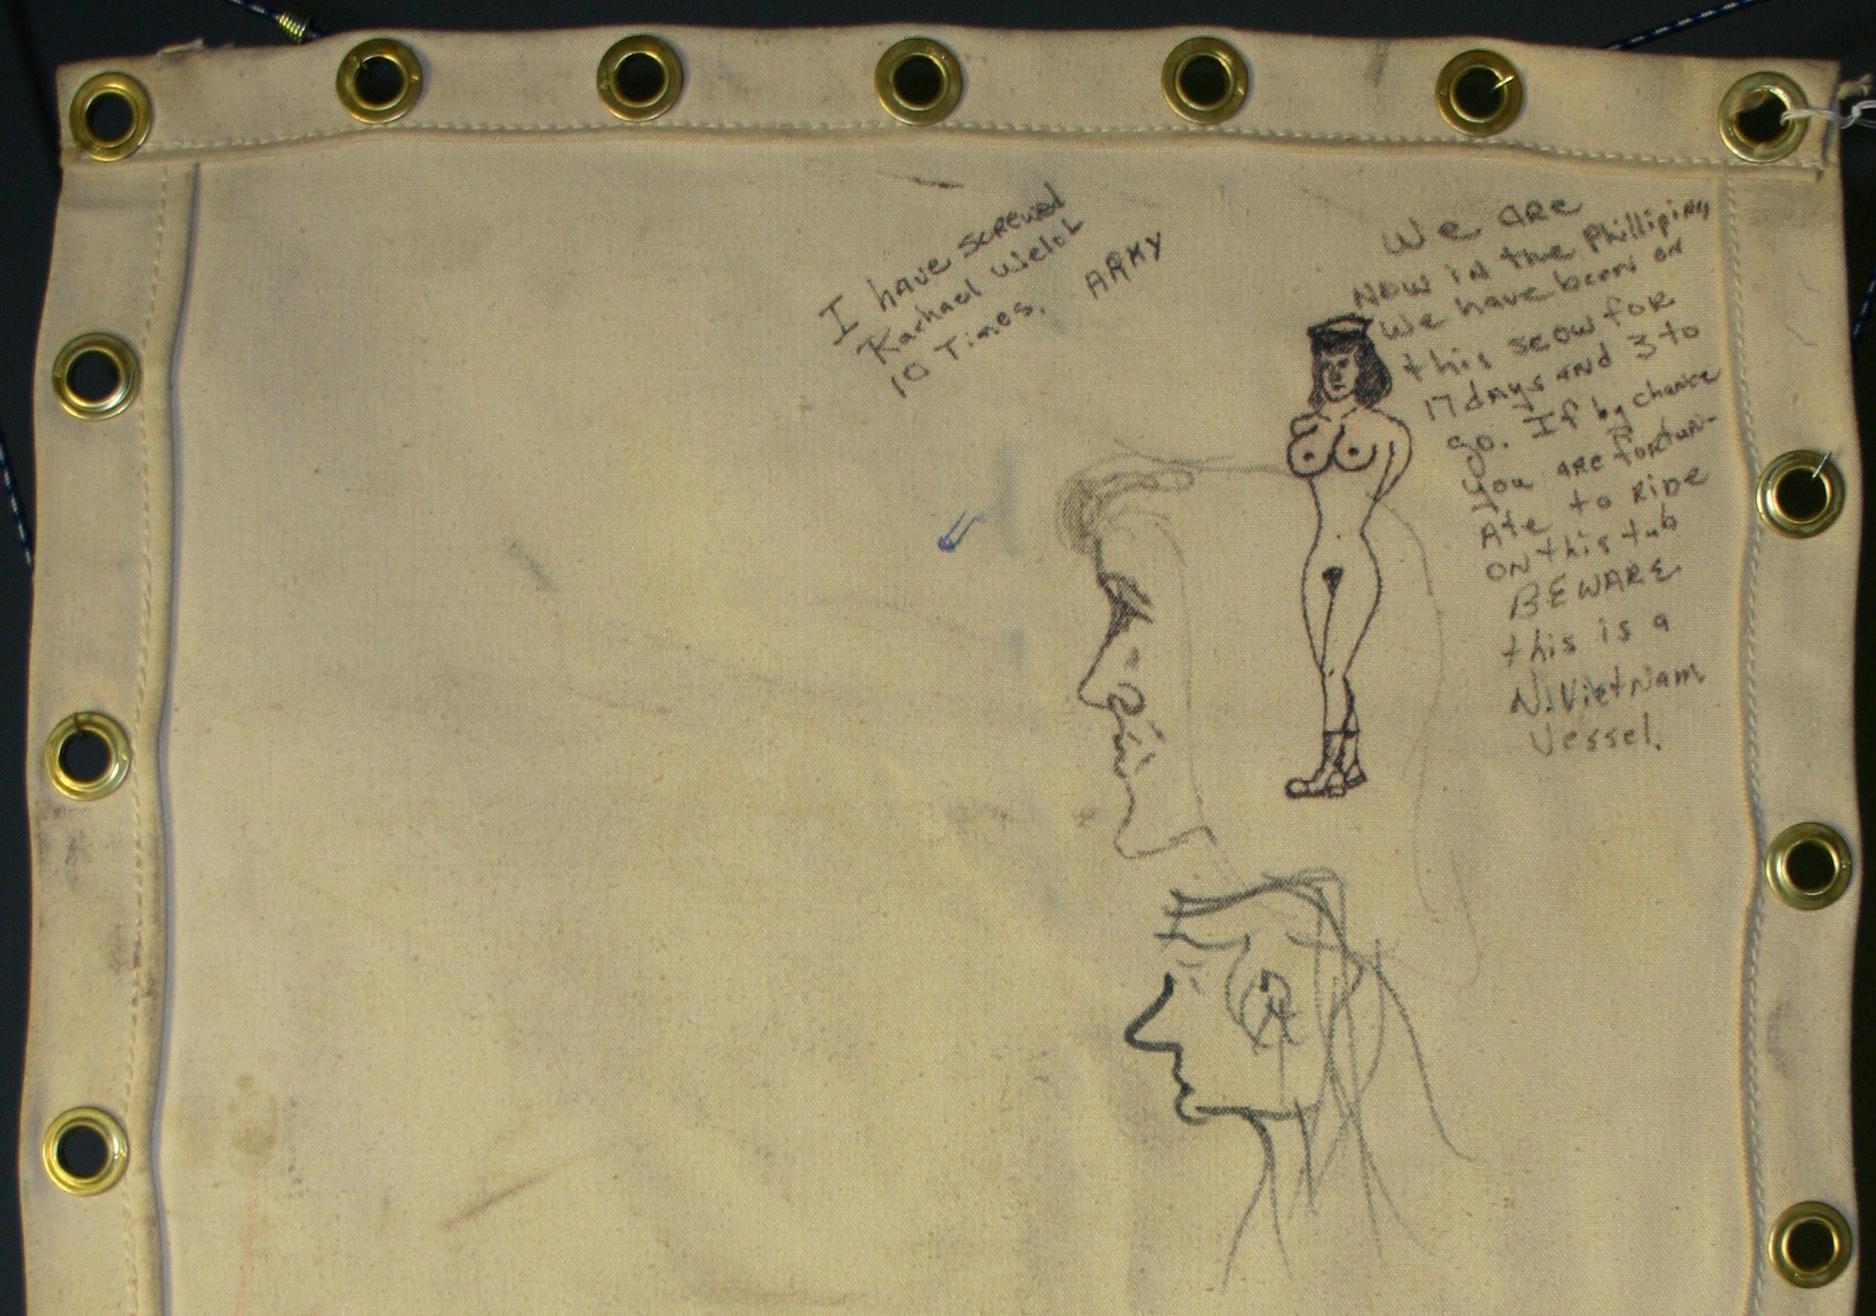 I have screwed
Rachael Welch
10 Times. ARMY
We are
Now in the Phillipines
We have been on
this scow for
17 days and 3 to
go. If by chance
you are fortun-
Ate to ride
on this tub
BEWARE
this is a
N. VietNam
Vessel.